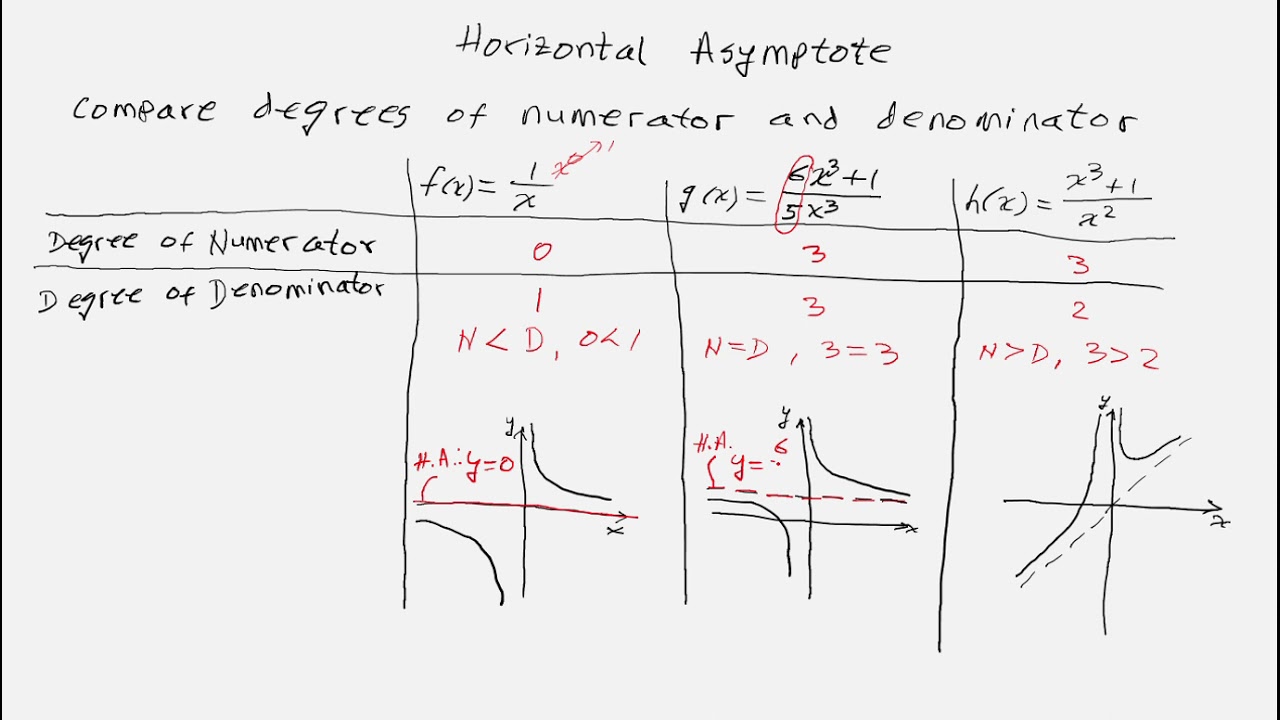 Horizontal Asymptote
compare degrees of numerator and denominator
f(x) = 1/x x⁰→1 g(x) = 6x³+1/5x³ h(x) = x³+1/x²
Degree of Numerator 0 3 3
Degree of Denominator 1 3 2
N < D, 0<1 N=D, 3=3 N>D, 3>2
y y y
H.A.: y=0 H.A. y= 6
x x x